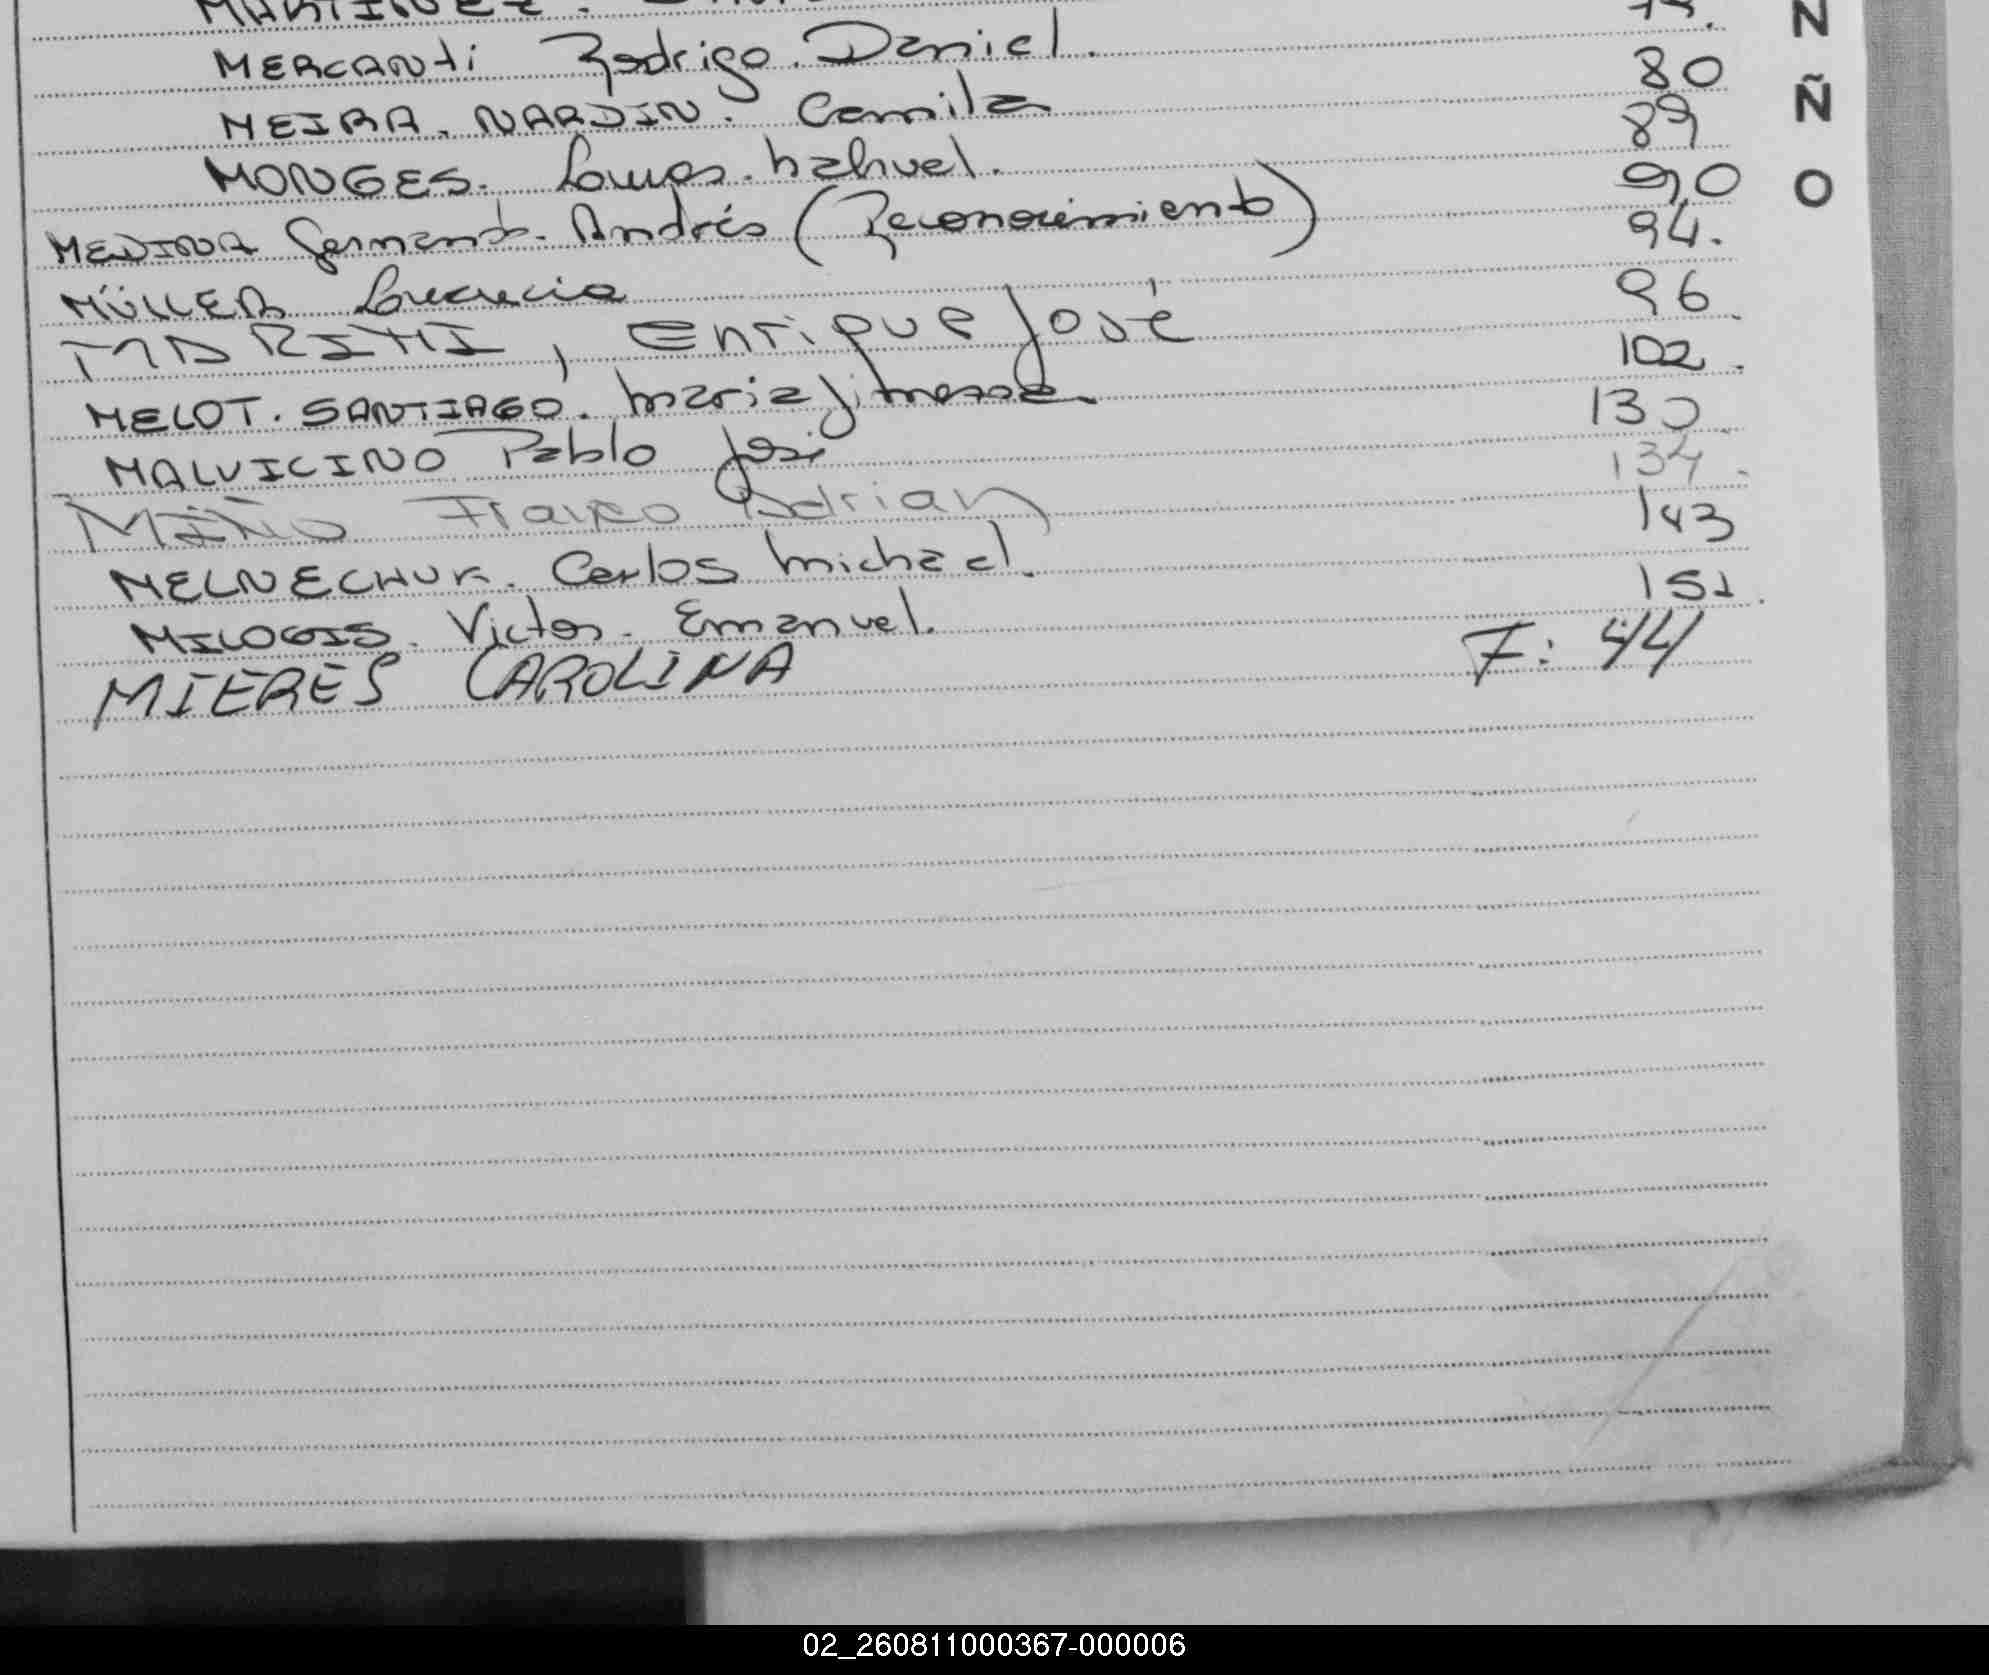 MARTINEZ.
MERCANti Rodrigo. Daniel. 80
MEIRA. NARDIN. Camila 89
MONGES. Lucas. Nahuel. 90
MEDINA Germando. Andrés (Reconocimiento) 94.
MÜLLER Lucrecia 96
MARINI, Enrique José 102.
MELOT. SANTIAGO. Maria Jimena 130
MALVICINO Pablo José 134.
MIÑO Franco Adrian 143
MELNECHUK. Carlos Michael. 151.
MILOGIS. Victor. Emanuel.
MIERES CAROLINA F: 44
N
Ñ
O
02_260811000367-000006